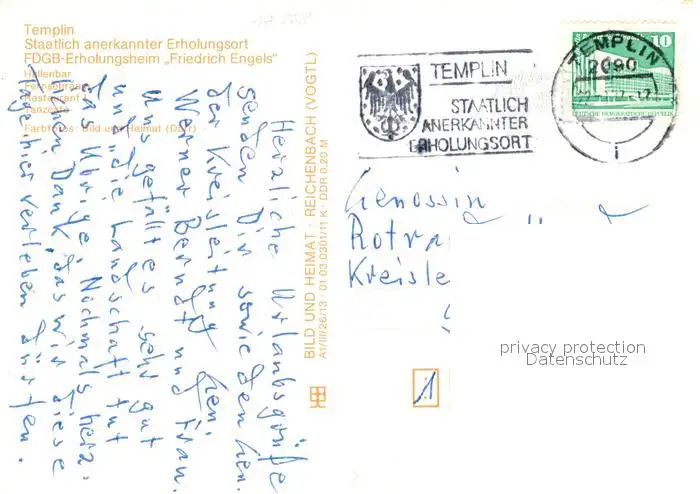 Templin
Staatlich anerkannter Erholungsort
FDGB-Erholungsheim „Friedrich Engels“
Hallenbar
Fernsehraum
Restaurant
Tanzcafé
Farbfotos: Bild und Heimat
Herzliche Urlaubsgrüße
senden Dir sowie den Gen.
der Kreisleitung Gen.
Werner Berndt und Frau.
Uns gefällt es sehr gut
und die Landschaft tut
das Übrige. Nochmals herz-
lichen Dank, das wir diese
Tage hier verleben dürfen.
BILD UND HEIMAT · REICHENBACH (VOGTL)
A1/III/26/13 · 01 03 0301/11 K · DDR 0,20 M
TEMPLIN
STAATLICH
ANERKANNTER
ERHOLUNGSORT
TEMPLIN
2090
i
10
DEUTSCHE DEMOKRATISCHE REPUBLIK
Genossin
Rotra
Kreisle
1
privacy protection
Datenschutz